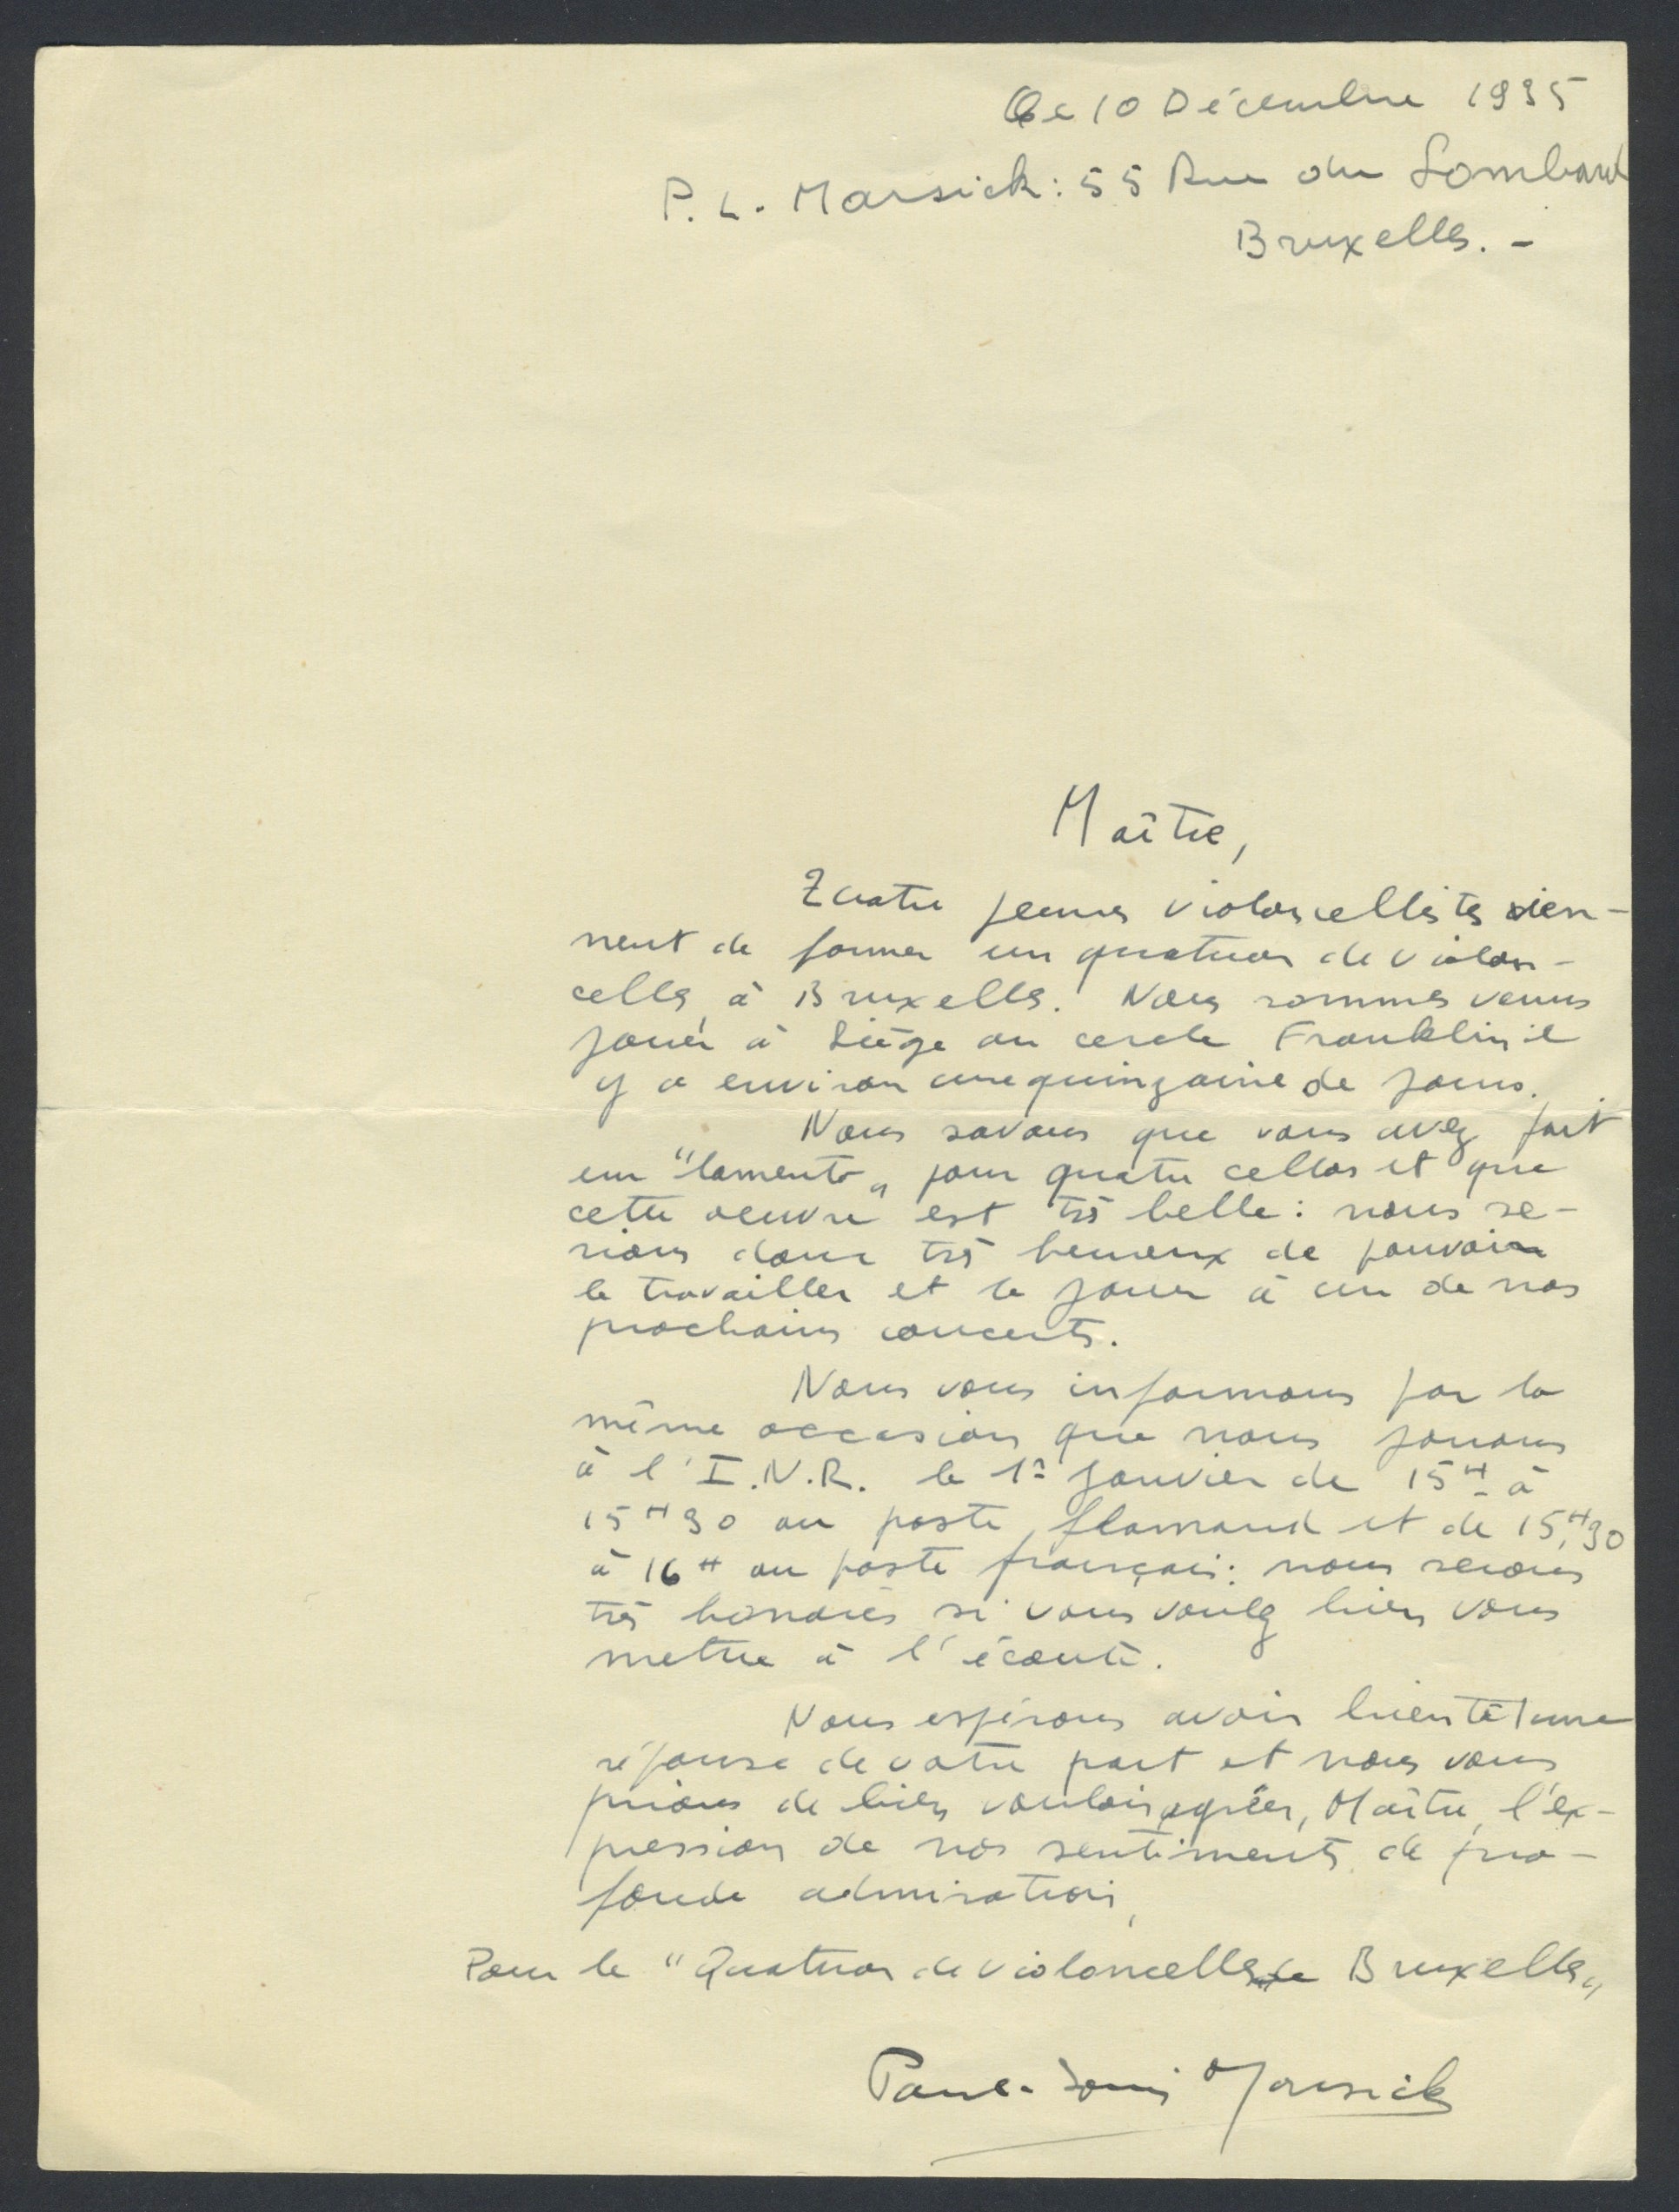 Le 10 Décembre 1935
P. L. Marsick : 55 Rue du Lombard
Bruxelles. -
Maître,
Quatre jeunes violoncellistes vien-
nent de former un quatuor de violon-
celles à Bruxelles. Nous sommes venus
jouer à Liège au cercle Franklin il
y a environ une quinzaine de jours.
Nous savons que vous avez fait
un "lamento„ pour quatre cellos et que
cette oeuvre est très belle : nous se-
rions donc très heureux de pouvoir
le travailler et le jouer à un de nos
prochains concerts.
Nous vous informons par la
même occasion que nous jouons
à l'I.N.R. le 1er Janvier de 15H à
15H30 au poste flamand et de 15H30
à 16H au poste français : nous serions
très honorés si vous voulez bien vous
mettre à l'écoute.
Nous espérons avoir bientôt une
réponse de votre part et nous vous
prions de bien vouloir agréer, Maître, l'ex-
pression de nos sentiments de pro-
fonde admiration,
Pour le "Quatuor de violoncelles de Bruxelles„
Paul-Louis Marsick